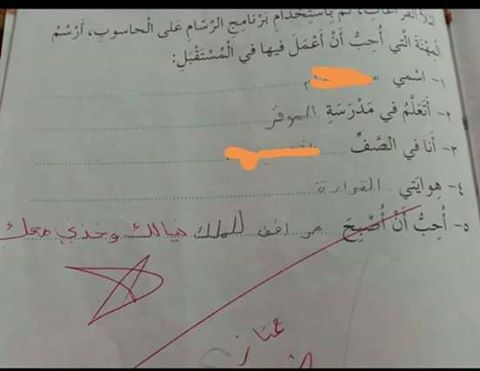 املأ الفراغات، ثم باستخدام برنامج الرسام على الحاسوب، أرسم
المهنة التي أحب أن أعمل فيها في المستقبل:
١- اسمي
٢- أتعلم في مدرسة الموقر
٣- أنا في الصف
٤- هوايتي القراءة
٥- أحب أن أصبح مرافق للملك نيالك وخذني معك
ممتاز